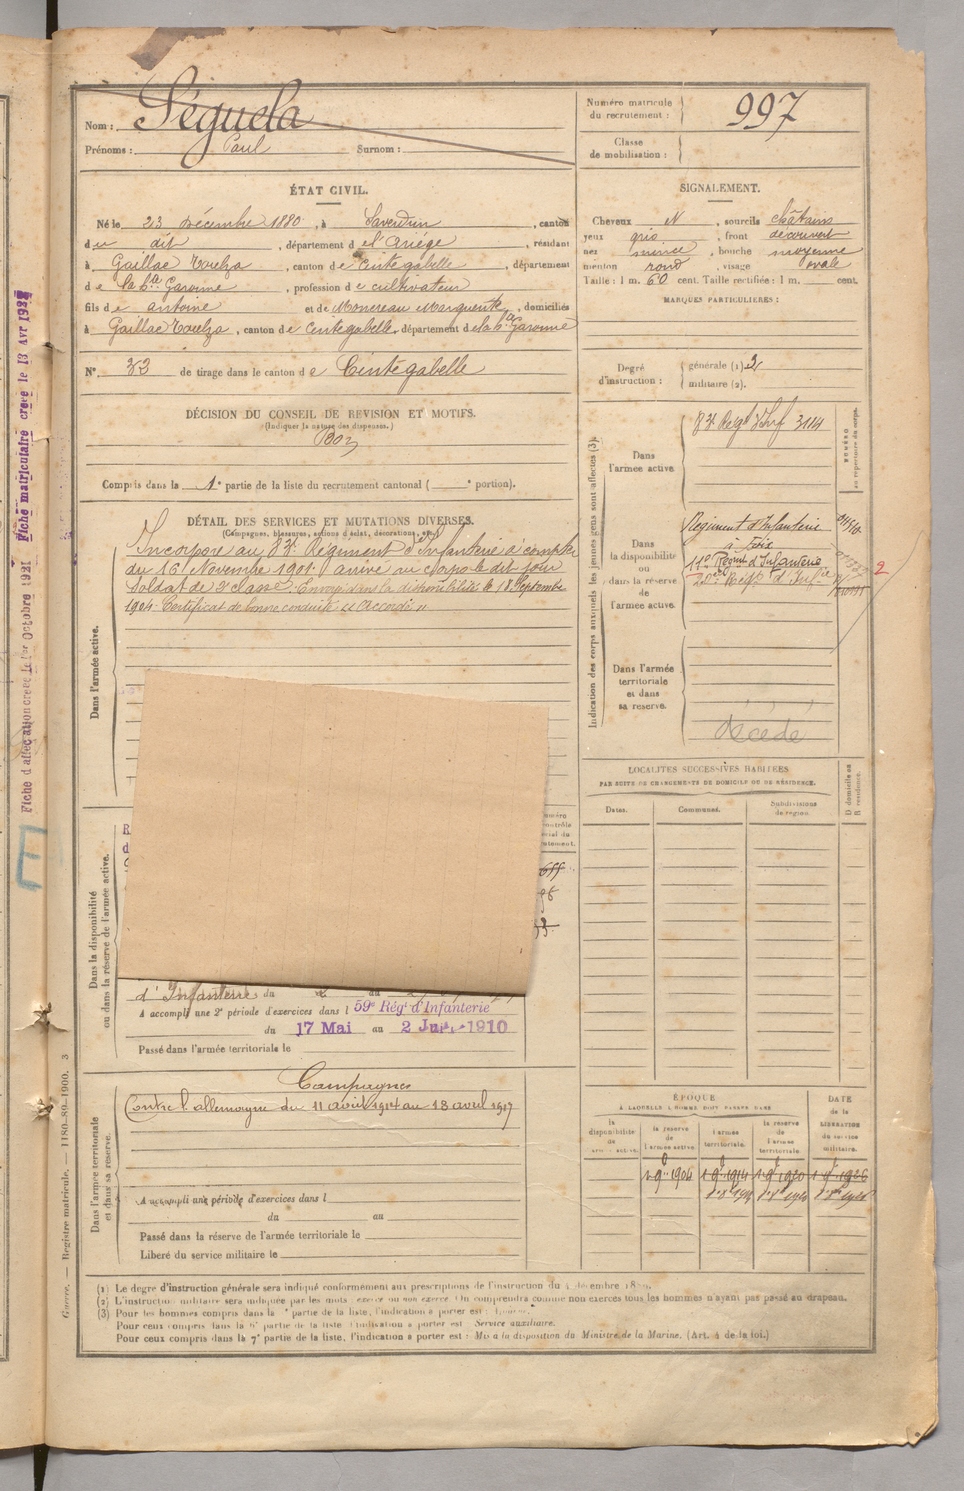 Nom : Séguela
Prénoms : Paul Surnom :
Numéro matricule du recrutement : 997
Classe de mobilisation :
ÉTAT CIVIL.
Né le 23 Décembre 1880, à Saverdun, canton
du dit, département de l'Ariége, résidant
à Gaillac Toulza, canton de Cintegabelle, département
de la hte Garonne, profession de cultivateur
fils de antoine et de Monereau Marguerite, domiciliés
à Gaillac Toulza, canton de Cintegabelle, département de la hte Garonne
N°. 33 de tirage dans le canton de Cintegabelle
DÉCISION DU CONSEIL DE REVISION ET MOTIFS.
(Indiquer la nature des dispenses.)
Bon
Compris dans la 1e partie de la liste du recrutement cantonal ( e portion).
SIGNALEMENT.
Cheveux N, sourcils châtains
yeux gris, front découvert
nez mince, bouche moyenne
menton rond, visage ovale
Taille : 1 m. 60 cent. Taille rectifiée : 1 m. cent.
MARQUES PARTICULIÈRES :
Degré d'instruction : générale (1) 2
militaire (2).
DÉTAIL DES SERVICES ET MUTATIONS DIVERSES.
(Campagnes, blessures, actions d'éclat, décorations, etc.)
Dans l'armée active.
Incorporé au 83e Régiment d'Infanterie à compter
du 16 Novembre 1901. arrivé au corps le dit jour
Soldat de 2e classe. Envoyé dans la disponibilité le 18 Septembre
1904. Certificat de bonne conduite "Accordé"
Indication des corps auxquels les jeunes gens sont affectés (3).
NUMÉRO au répertoire du corps.
Dans l'armée active.
83e Régt d'Inf 3114
Dans la disponibilité ou dans la réserve de l'armée active.
Régiment d'Infanterie
à Foix
Régint d'Infanterie
2
Dans l'armée territoriale et dans sa réserve.
décédé
LOCALITÉS SUCCESSIVES HABITÉES
PAR SUITE DE CHANGEMENTS DE DOMICILE OU DE RÉSIDENCE.
Dates. Communes. Subdivisions de région. D domicile ou R résidence.
Dans la disponibilité ou dans la réserve de l'armée active.
d'Infanterie du au
A accompli une 2e période d'exercices dans l 59e Régt d'Infanterie
du 17 Mai au 2 Juin 1910
Passé dans l'armée territoriale le
Dans l'armée territoriale et dans sa réserve.
Campagnes
Contre l'allemagne du 11 avril 1914 au 18 avril 1917
A accompli une période d'exercices dans l
du au
Passé dans la réserve de l'armée territoriale le
Libéré du service militaire le
ÉPOQUE
À LAQUELLE L'HOMME DOIT PASSER DANS
DATE de la LIBÉRATION du service militaire.
la disponibilité de l'armée active. la réserve de l'armée active. l'armée territoriale. la réserve de l'armée territoriale.
1904 1914 1920 1926
(1) Le degré d'instruction générale sera indiqué conformément aux prescriptions de l'instruction du 4 décembre 1889.
(2) L'instruction militaire sera indiquée par les mots : exercé ou non exercé. On comprendra comme non exercés tous les hommes n'ayant pas passé au drapeau.
(3) Pour les hommes compris dans la e partie de la liste, l'indication à porter est :
Pour ceux compris dans la 6e partie de la liste l'indication à porter est Service auxiliaire.
Pour ceux compris dans la 7e partie de la liste, l'indication à porter est : Mis à la disposition du Ministre de la Marine. (Art. 4 de la loi.)
Guerre. — Registre matricule. — 1180-89-1900. 3
Fiche d'affectation créée le 1er Octobre 1921 Fiche matriculaire créée le 13 Avr
E